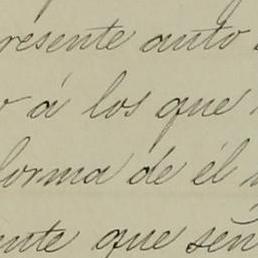 resente auto
á los que
forma de él
nte que señ